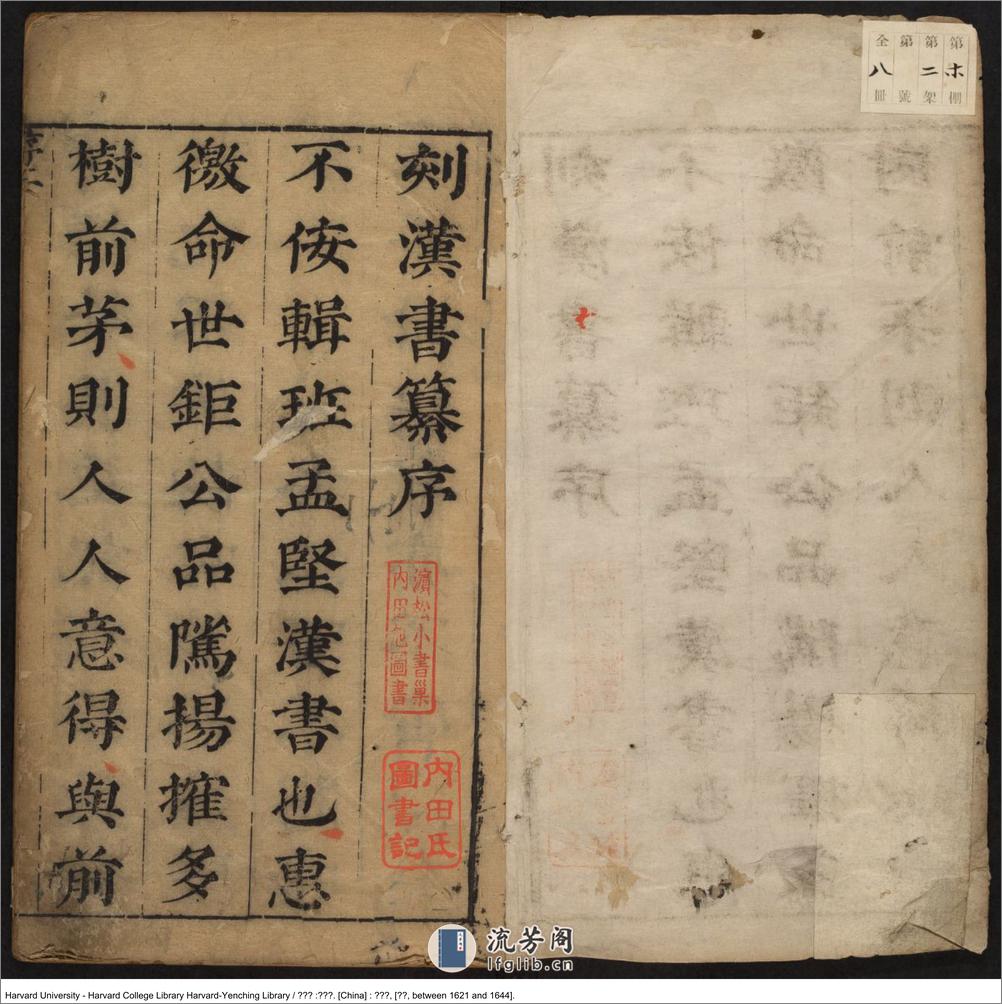 第木棚
第二架
第號
全八冊
刻漢書纂序
不佞輯班孟堅漢書也惠
徼命世鉅公品隲揚搉多
樹前茅則人人意得與前
濵松小書巢
内田氏圖書
内田氏
圖書記
流芳阁
lfglib.cn
Harvard University - Harvard College Library Harvard-Yenching Library / ??? :???. [China] : ???, [??, between 1621 and 1644].